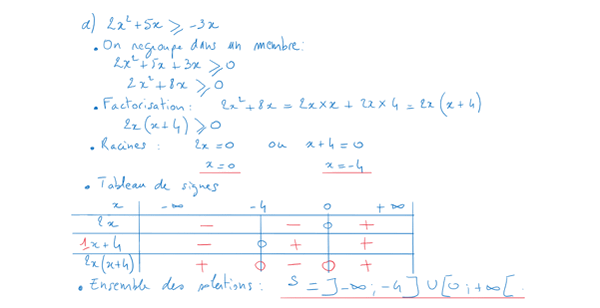 a) 2x²+5x ⩾ -3x
• On regroupe dans un membre:
2x²+5x+3x ⩾ 0
2x²+8x ⩾ 0
• Factorisation: 2x²+8x = 2x×x + 2x×4 = 2x(x+4)
2x(x+4) ⩾ 0
• Racines: 2x=0 ou x+4=0
x=0 x=-4
• Tableau de signes
x -∞ -4 0 +∞
2x - - 0 +
1x+4 - 0 + +
2x(x+4) + 0 - 0 +
• Ensemble des solutions: S = ]-∞;-4] ∪ [0;+∞[